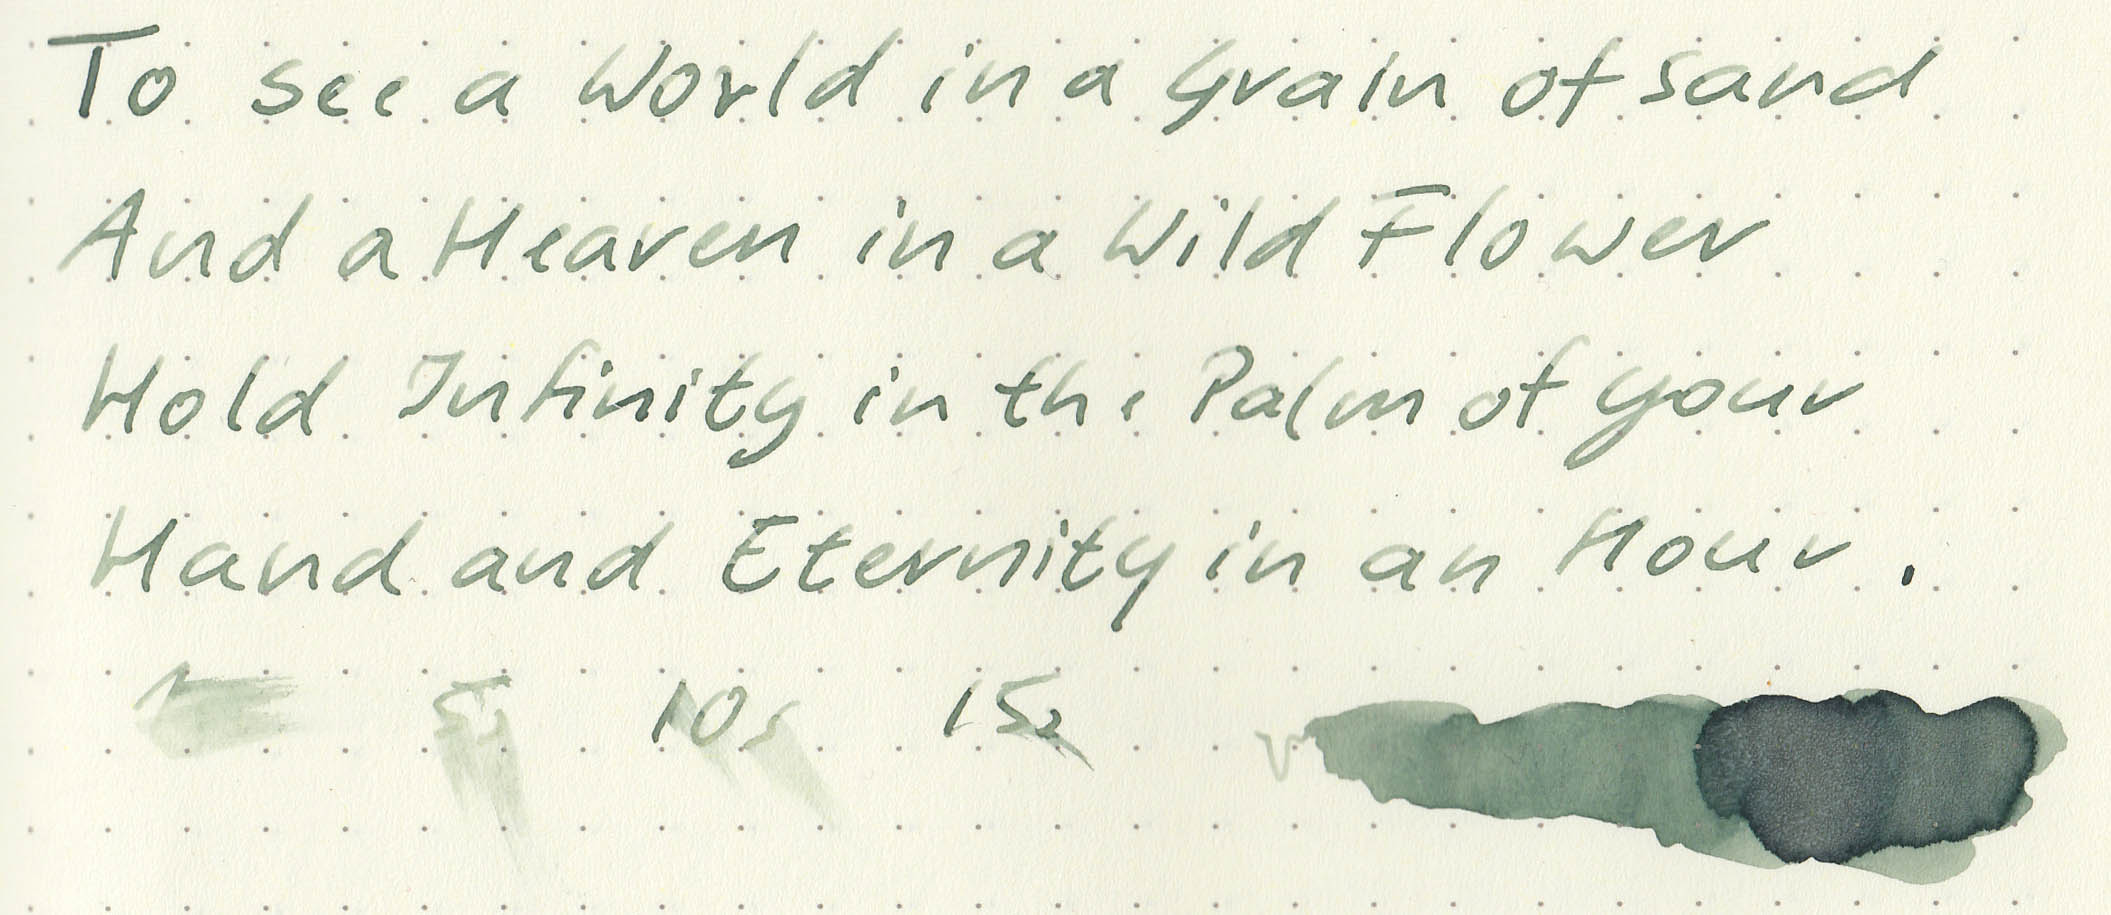 To see a World in a Grain of Sand
And a Heaven in a Wild Flower
Hold Infinity in the Palm of your
Hand and Eternity in an Hour.
5s 10s 15s